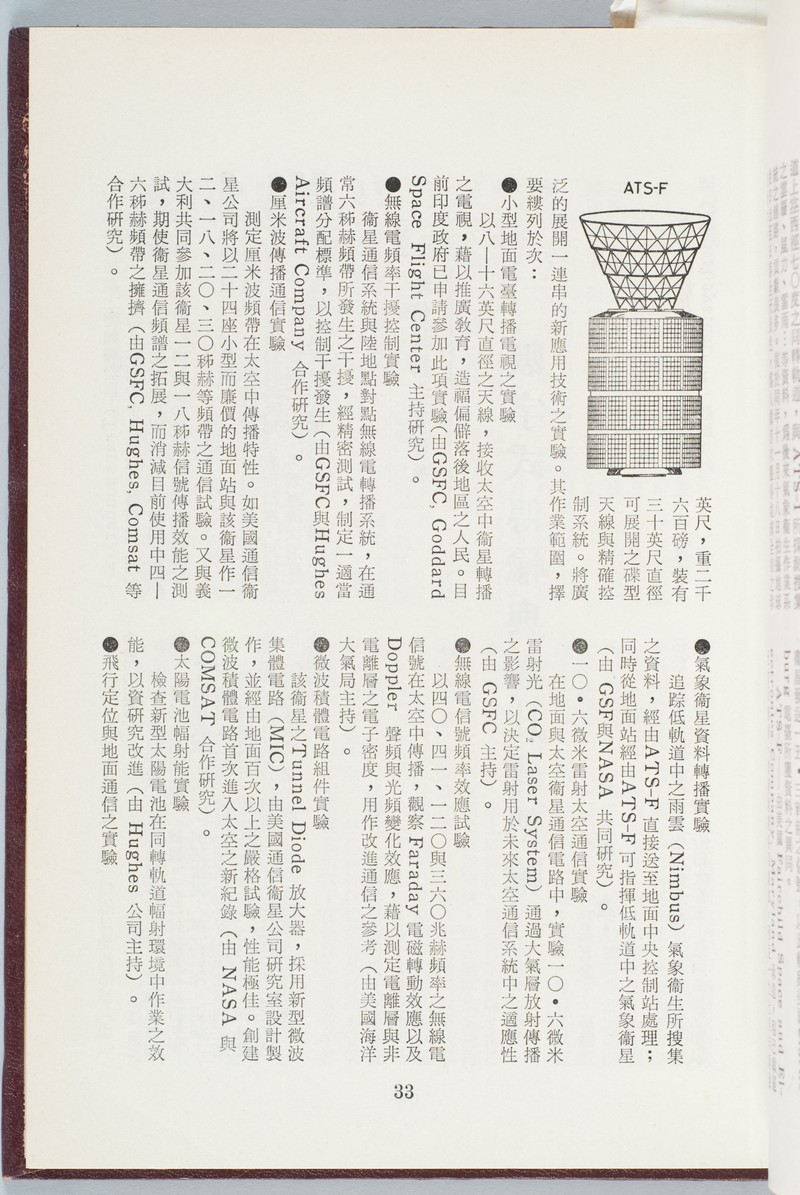 ATS-F
英尺，重二千
六百磅，裝有
三十英尺直徑
可展開之碟型
天線與精確控
制系統。將廣
泛的展開一連串的新應用技術之實驗。其作業範圍，擇
要縷列於次：
●小型地面電臺轉播電視之實驗
以八—十六英尺直徑之天線，接收太空中衞星轉播
之電視，藉以推廣敎育，造福偏僻落後地區之人民。目
前印度政府已申請參加此項實驗（由GSFC, Goddard
Space Flight Center 主持研究）。
●無線電頻率干擾控制實驗
衞星通信系統與陸地點對點無線電轉播系統，在通
常六秭赫頻帶所發生之干擾，經精密測試，制定一適當
頻譜分配標準，以控制干擾發生（由GSFC與Hughes
Aircraft Company 合作研究）。
●厘米波傳播通信實驗
測定厘米波頻帶在太空中傳播特性。如美國通信衞
星公司將以二十四座小型而廉價的地面站與該衞星作一
二、一八、二〇、三〇秭赫等頻帶之通信試驗。又與義
大利共同參加該衞星一二與一八秭赫信號傳播效能之測
試，期使衞星通信頻譜之拓展，而消減目前使用中四—
六秭赫頻帶之擁擠（由GSFC, Hughes, Comsat 等
合作研究）。
●氣象衞星資料轉播實驗
追踪低軌道中之雨雲（Nimbus）氣象衞生所搜集
之資料，經由ATS-F 直接送至地面中央控制站處理；
同時從地面站經由ATS-F 可指揮低軌道中之氣象衞星
（由 GSF與NASA 共同研究）。
●一〇•六微米雷射太空通信實驗
在地面與太空衞星通信電路中，實驗一〇•六微米
雷射光（CO₂ Laser System）通過大氣層放射傳播
之影響，以決定雷射用於未來太空通信系統中之適應性
（由 GSFC 主持）。
●無線電信號頻率效應試驗
以四〇、四一、一二〇與三六〇兆赫頻率之無線電
信號在太空中傳播，觀察 Faraday 電磁轉動效應以及
Doppler 聲頻與光頻變化效應，藉以測定電離層與非
電離層之電子密度，用作改進通信之參考（由美國海洋
大氣局主持）。
●微波積體電路組件實驗
該衞星之Tunnel Diode 放大器，採用新型微波
集體電路（MIC），由美國通信衞星公司研究室設計製
作，並經由地面百次以上之嚴格試驗，性能極佳。創建
微波積體電路首次進入太空之新紀錄（由 NASA 與
COMSAT 合作研究）。
●太陽電池輻射能實驗
檢查新型太陽電池在同轉軌道輻射環境中作業之效
能，以資研究改進（由 Hughes 公司主持）。
●飛行定位與地面通信之實驗
33